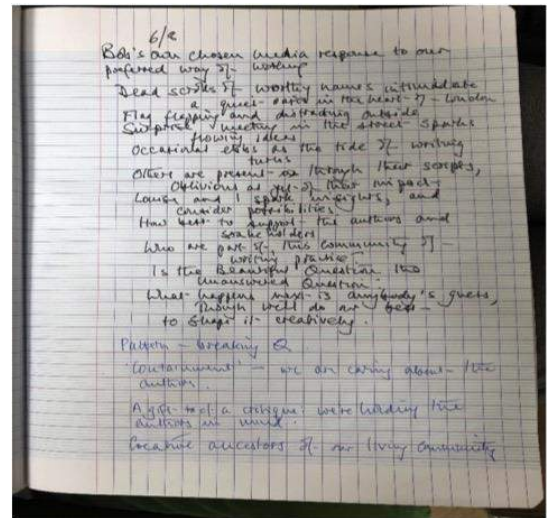 6/8
Bob's own chosen media response to our
preferred way of working
Dead scrolls of worthy names intimidate
a quiet oasis in the heart of London
Flag flapping and distracting outside
Surprise meeting in the street sparks
flowing ideas
Occasional ebbs as the tide of writing
turns
Others are present through their scripts,
Oblivious as yet of their impact
Louise and I spark insights, and
consider possibilities
How best to support the authors and
stakeholders
Who are part of this community of
writing practice
Is the Beautiful Question the
Unanswered Question
What happens next is anybody's guess,
Though we'll do our best
to shape it creatively.
Pattern-breaking Q
'Containment' – we are caring about the
authors.
A gift of a critique: we're holding the
authors in mind.
Creative ancestors of our living community